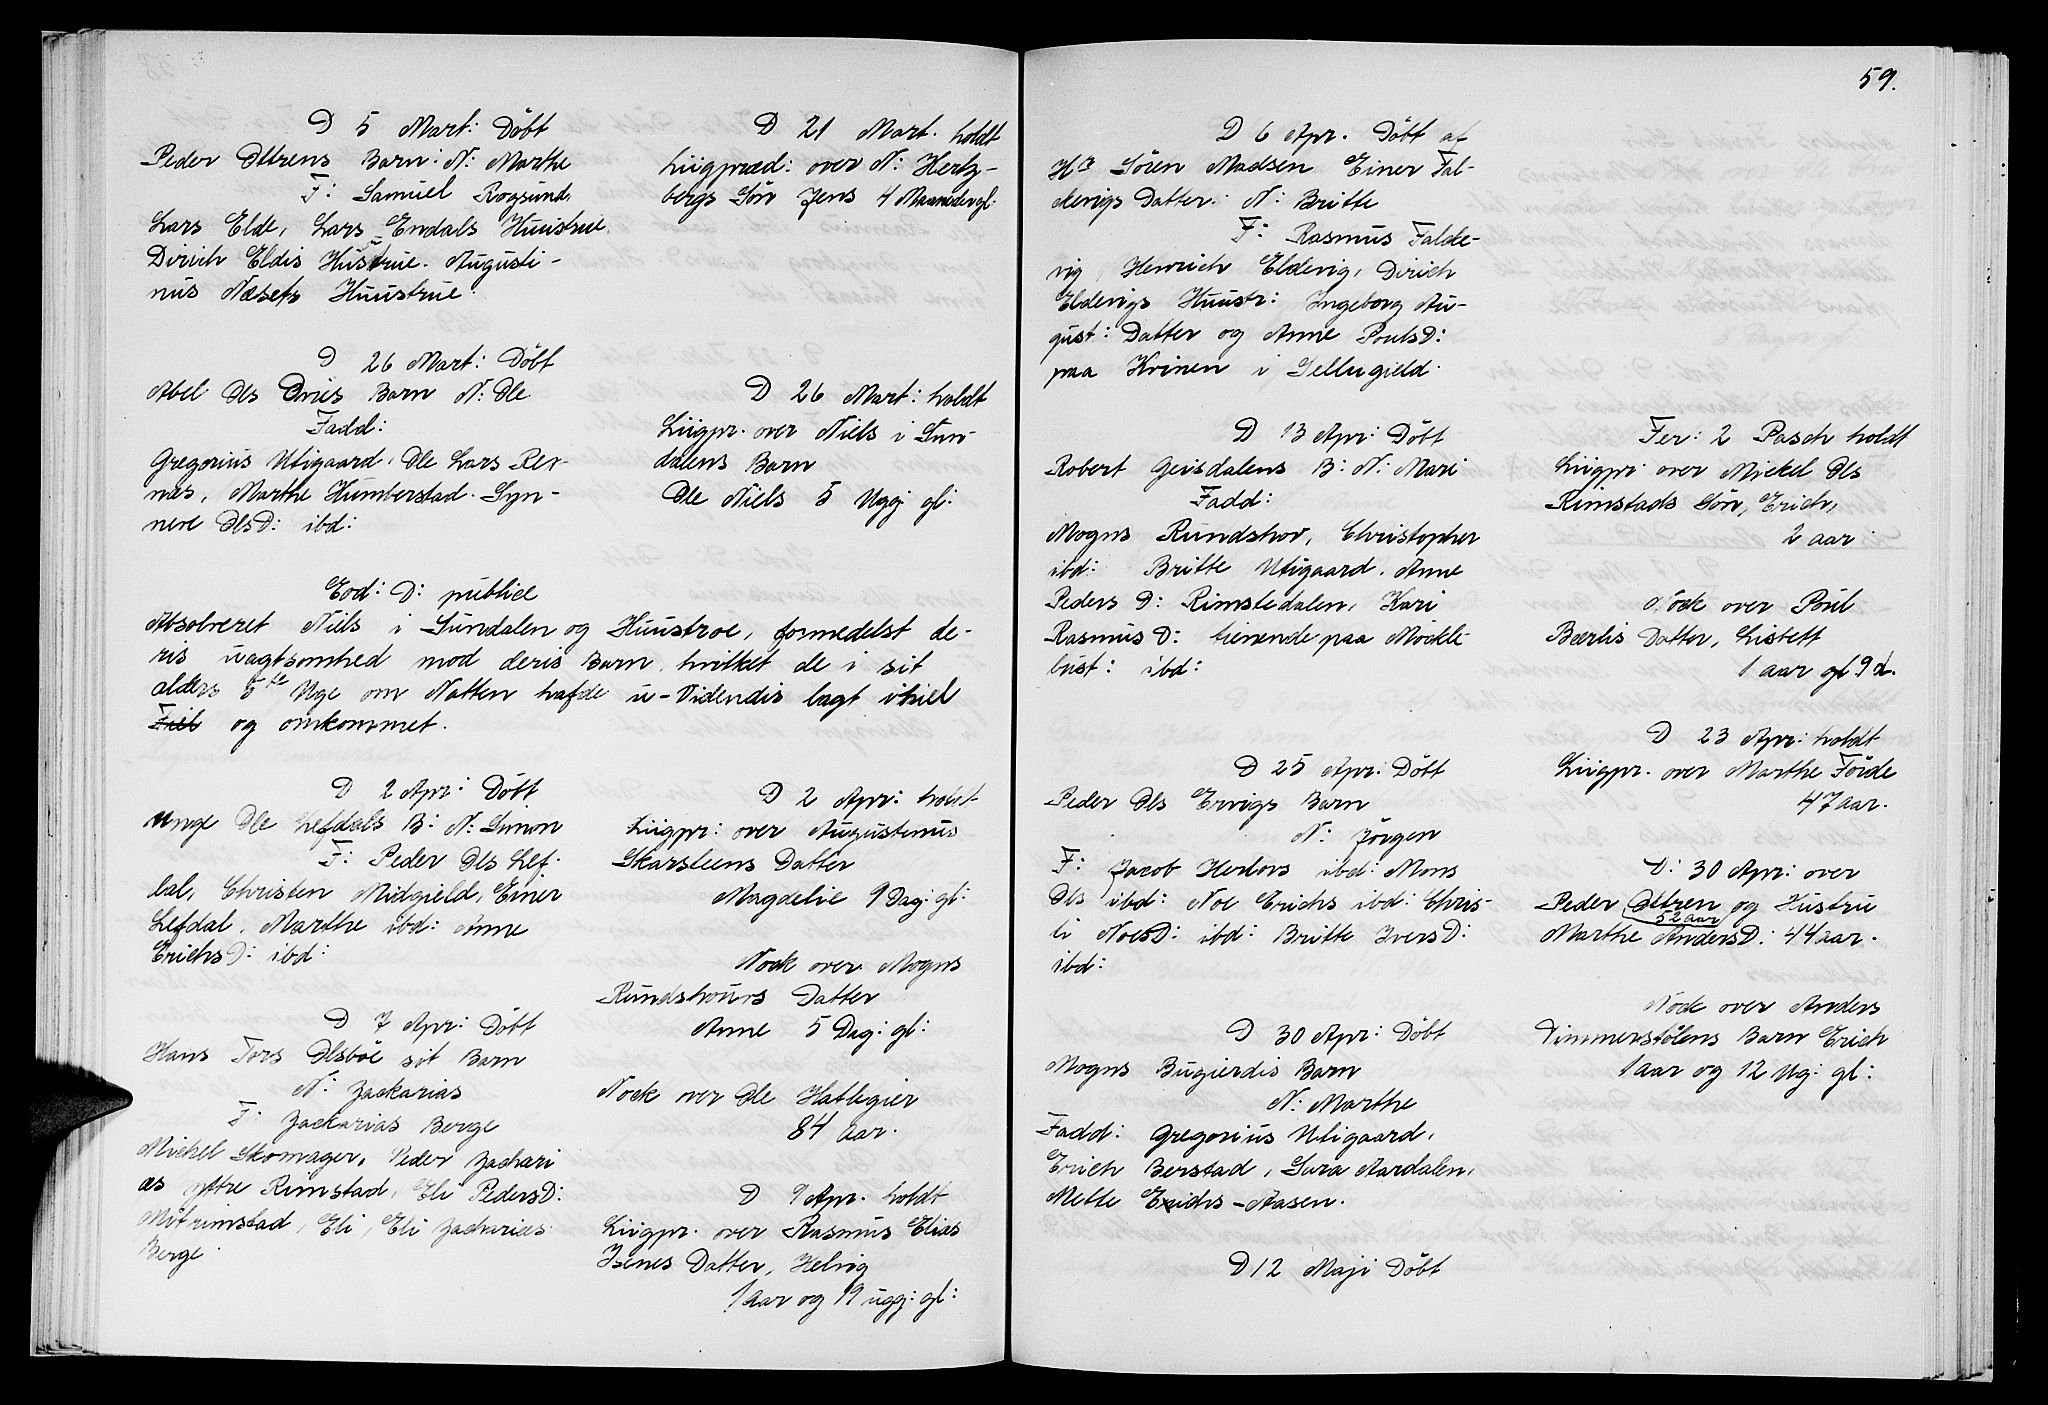 D 5 Mart: Döbt
Peder Attrens Barn: N: Marthe
F: Samuel Rogsund.
Lars Elde, Lars Endals Huustrue.
Dirich Eldis Hustrue. Augusti-
nus Næsets Huustrue.
D 26 Mart: Döbt
Abel Ols Ories Barn N: Ole
Fadd:
Gregorius Utigaard, Ole Lars Rex-
næs, Marthe Humberstad. Syn-
neve OlsD: ibd:
Eod: D: publice
Absolveret Niels i Sundalen og Huustroe, formedelst de-
ris uagtsomhed mod deris Barn, hvilket de i sit
alders 5te Uge om Natten hafde u-Videndis lagt ihiel
Fiel og omkommet.
D 2 Apr: Döbt
unge Ole Lefdals B: N: Simon
F: Peder Ols Lef-
dal, Christen Midgield, Einer
Lefdal, Marthe ibd: Anne
ErichsD: ibd:
D 7 Apr: Döbt
Hans Fors Olsböe sit Barn
N: Zackarias
F: Zackarias Berge
Mickel Skomager, Peder Zachari
as yttre Rimstad, Eli PedersD:
Mitrimstad, Eli, Eli Zacharies
Berge.
D 21 Mart. holdt
Liigpræd: over N: Hertz-
bergs Sön Jens 4 Maaneder gl:
D 26 Mart: holdt
Liigpr. over Niels i Sun-
dalens Barn
Ole Niels 5 Ugg gl:
D 2 Apr: holdt
Liigpr: over Augustinus
Skarsteens Datter
Magdelie 9 Dag: gl:
Nock over Mogns
Rundshours Datter
Anne 5 Dag: gl:
Nock over Ole Hatlegier
84 aar.
D 9 Apr. holdt
Liigpr. over Rasmus Elias
Isenes Datter, Helvig
1 aar og 19 ugg: gl:
59.
D 6 Apr. Döbt af
Hr Sören Madsen Einer Fal-
ckevigs Datter: N: Britte
F: Rasmus Falcke-
vig, Henrich Eldevig, Dirich
Eldevigs Huustr: Ingeborg Au-
gust: Datter og Anne PoulsD:
paa Hvinen i Sellugield.
D 13 Apr: Döbt
Robert Geisdalens B: N: Mari
Fadd:
Mogns Rundshov, Christopher
ibd: Britte Utigaard, Anne
Peders D: Rimstedalen, Kari
Rasmus D: tienende paa Möckle-
bust: ibd:
D 25 Apr: Döbt
Peder Ols Ervigs Barn
N: Jörgen
F: Jacob Herlovs ibd: Mons
Ols ibd: Noe Erichs ibd: Chris-
ti NoesD: ibd: Britte IversD:
ibd:
D 30 Apr: Döbt
Mogns Bugierdis Barn
N: Marthe
Fadd: Gregorius Utigaard,
Erich Berstad, Siva Aardalen,
Mette Erichs-Aasen.
D 12 Maji Döbt
Fer: 2 Pasch holdt
Liigpr: over Mickel Ols
Rimstads Sön, Erich,
2 aar
Nock over Poul
Bærlis Datter, Lisbett
1 aar gl 9 d.
D 23 Apr: holdt
Liigpr. over Marthe Förde
47 aar.
D: 30 Apr: over
Peder Attren og Hustru
52 aar
Marthe AndersD: 44 aar.
Nock over Anders
Timmerstölens Barn Erich
1 aar og 12 Ug: gl: